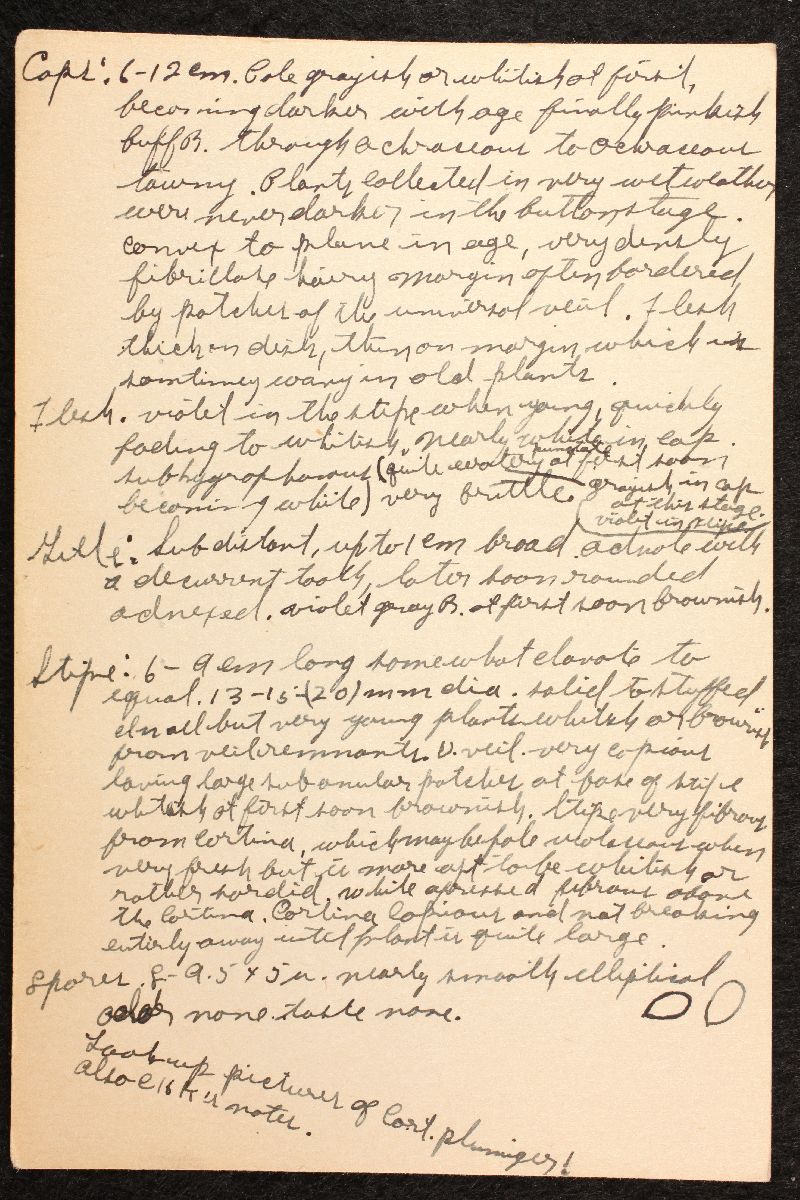 Caps: 6-12 cm. Cole grayish or whitish at first,
becoming darker with age finally pinkish
buff R. through ochraseous to ochraseous
tawny. Plants collected in very wet weather
were never darker in the button stage.
convex to plane in age, very densly
fibrillose hairy margin often bordered
by patches of the universal veil. Flesh
thick on disk, thin on margin, which is
somtimes wavy in old plants.
Flesh. violet in the stipe when young, quickly
fading to whitish, nearly white in cap.
subhygrophanous (quite watery at first soon
becoming white) very brittle. grayish in cap
at this stage.
violet in stipe
Gills: Subdistant, up to 1 cm broad adnate with
a decurrent tooth, later soon rounded
adnexed. violet gray R. at first soon brownish.
Stipe: 6-9 cm long somewhat clavate to
equal. 13-15-(20) mm dia. solid to stuffed
in all but very young plants whitish or brownish
from veil remnants. U. veil very copious
laving large subanular patches at base of stipe
whitish at first soon brownish. Stipe very fibrous
from cortina, which may be pale violaseous when
very fresh but is more apt to be whitish or
rather sordid, white apressed fibrous above
the Cortina. Cortina Copious and not breaking
entirly away until plant is quite large.
Spores. 8-9.5 x 5 u. nearly smooth elliptical
odor none. taste none.
Look up pictures of Cort. plumiger!
also notes.